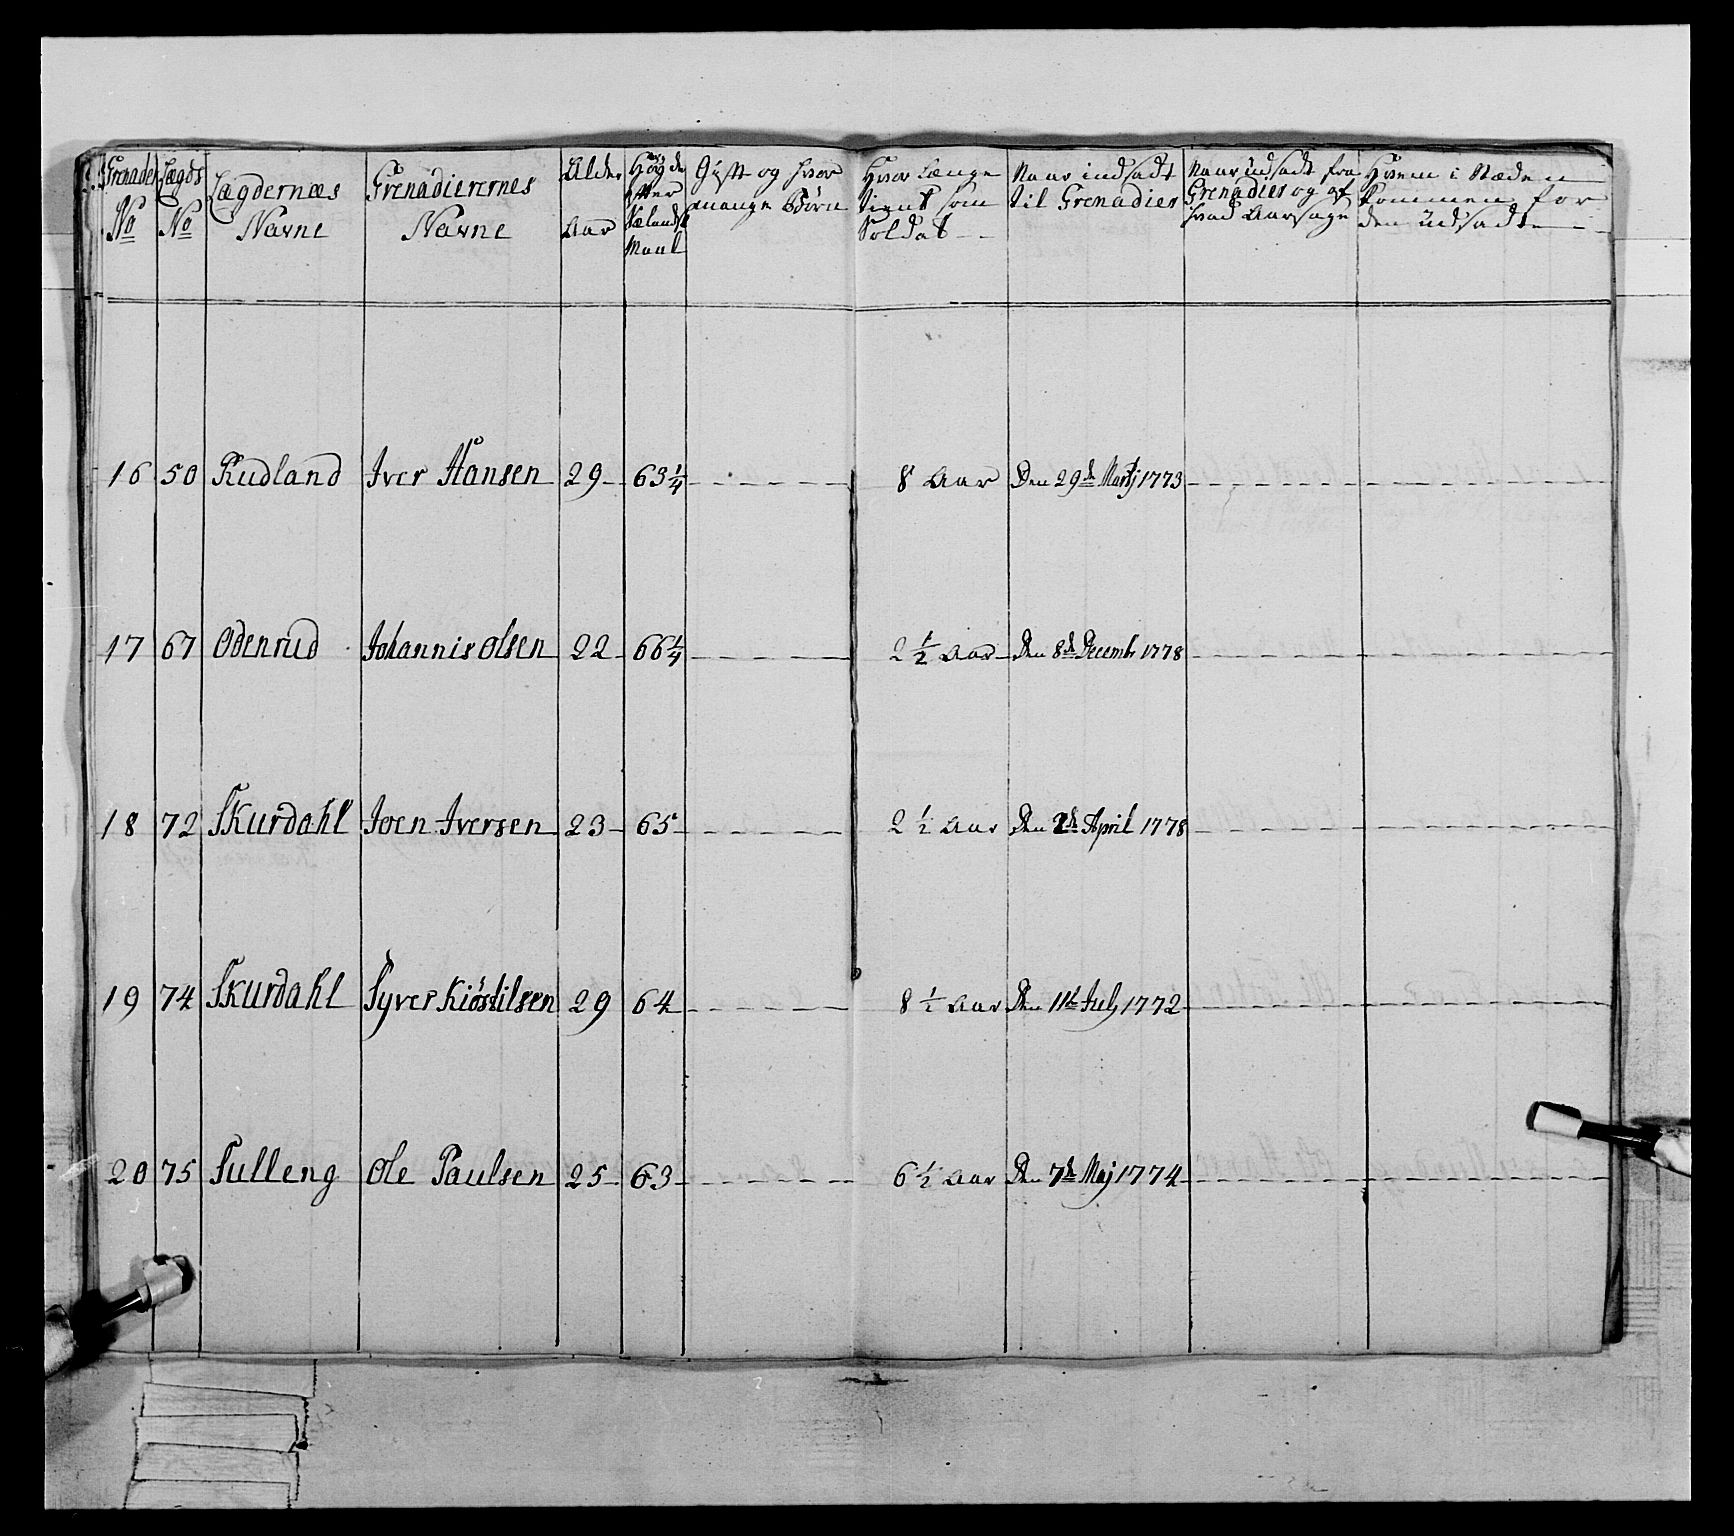 Grenader No | Lægds No | Lægdernæs Navne | Grenadierernes Navne | Alder Aar | Høyde efter Siælandsk Maal | Gift og hvor mange Børn | Hvor Længe tient som Soldat | Naar indsadt til Grenadier | Naar udsadt fra Grenadier og af hvad Aarsage | Hvem i Stæden kommen for den udsadte
16 | 50 | Rudland | Iver Hansen | 29 | 63 1/4 | 8 Aar | Den 29de Martj 1773
17 | 67 | Odenrud | Johannis Olsen | 22 | 66 1/4 | 2 1/2 Aar | Den 8de Decembr 1778
18 | 72 | Skurdahl | Joen Iversen | 23 | 65 | 2 1/2 Aar | Den 2de April 1778
19 | 74 | Skurdahl | Syver Kiöstilsen | 29 | 64 | 8 1/2 Aar | Den 11te July 1772
20 | 75 | Sulleng | Ole Paulsen | 25 | 63 | 6 1/2 Aar | Den 7de Maj 1774